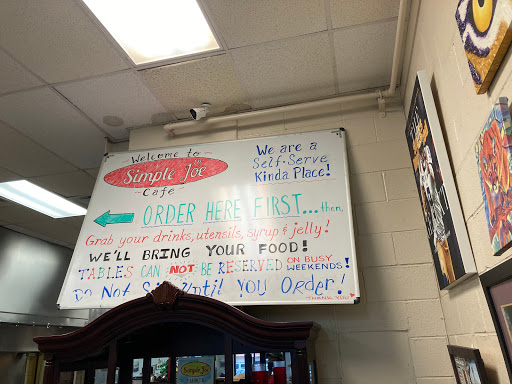 Welcome to
Simple Joe
- Cafe -
We are a
Self-Serve
Kinda Place!
ORDER HERE FIRST... then,
Grab your drinks, utensils, syrup & jelly!
WE'LL BRING YOUR FOOD!
TABLES CAN NOT BE RESERVED ON BUSY WEEKENDS!
Do Not Sit Until YOU Order!
THANK YOU
Simple Joe